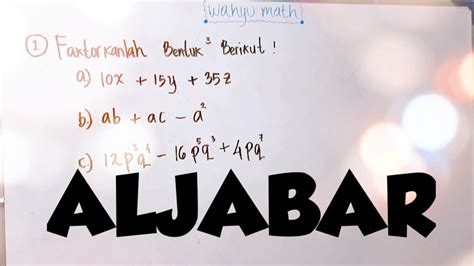 wahyu math
① Faktorkanlah Bentuk³ Berikut !
a) 10x + 15y + 35z
b.) ab + ac - a²
c) 12p³q⁴ - 16p⁵q³ + 4pq⁷
ALJABAR